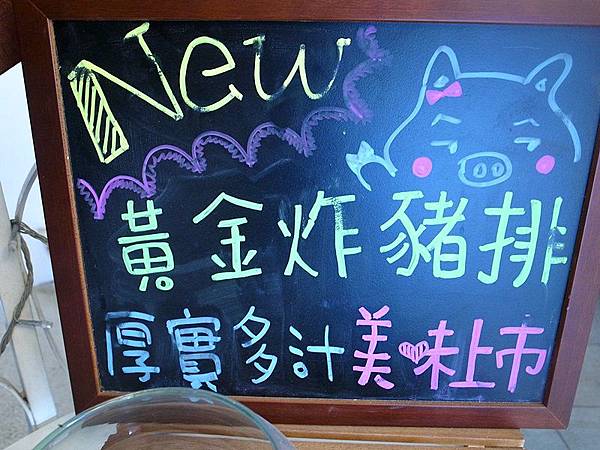 New
黃金炸豬排
厚實多計美♥味上市